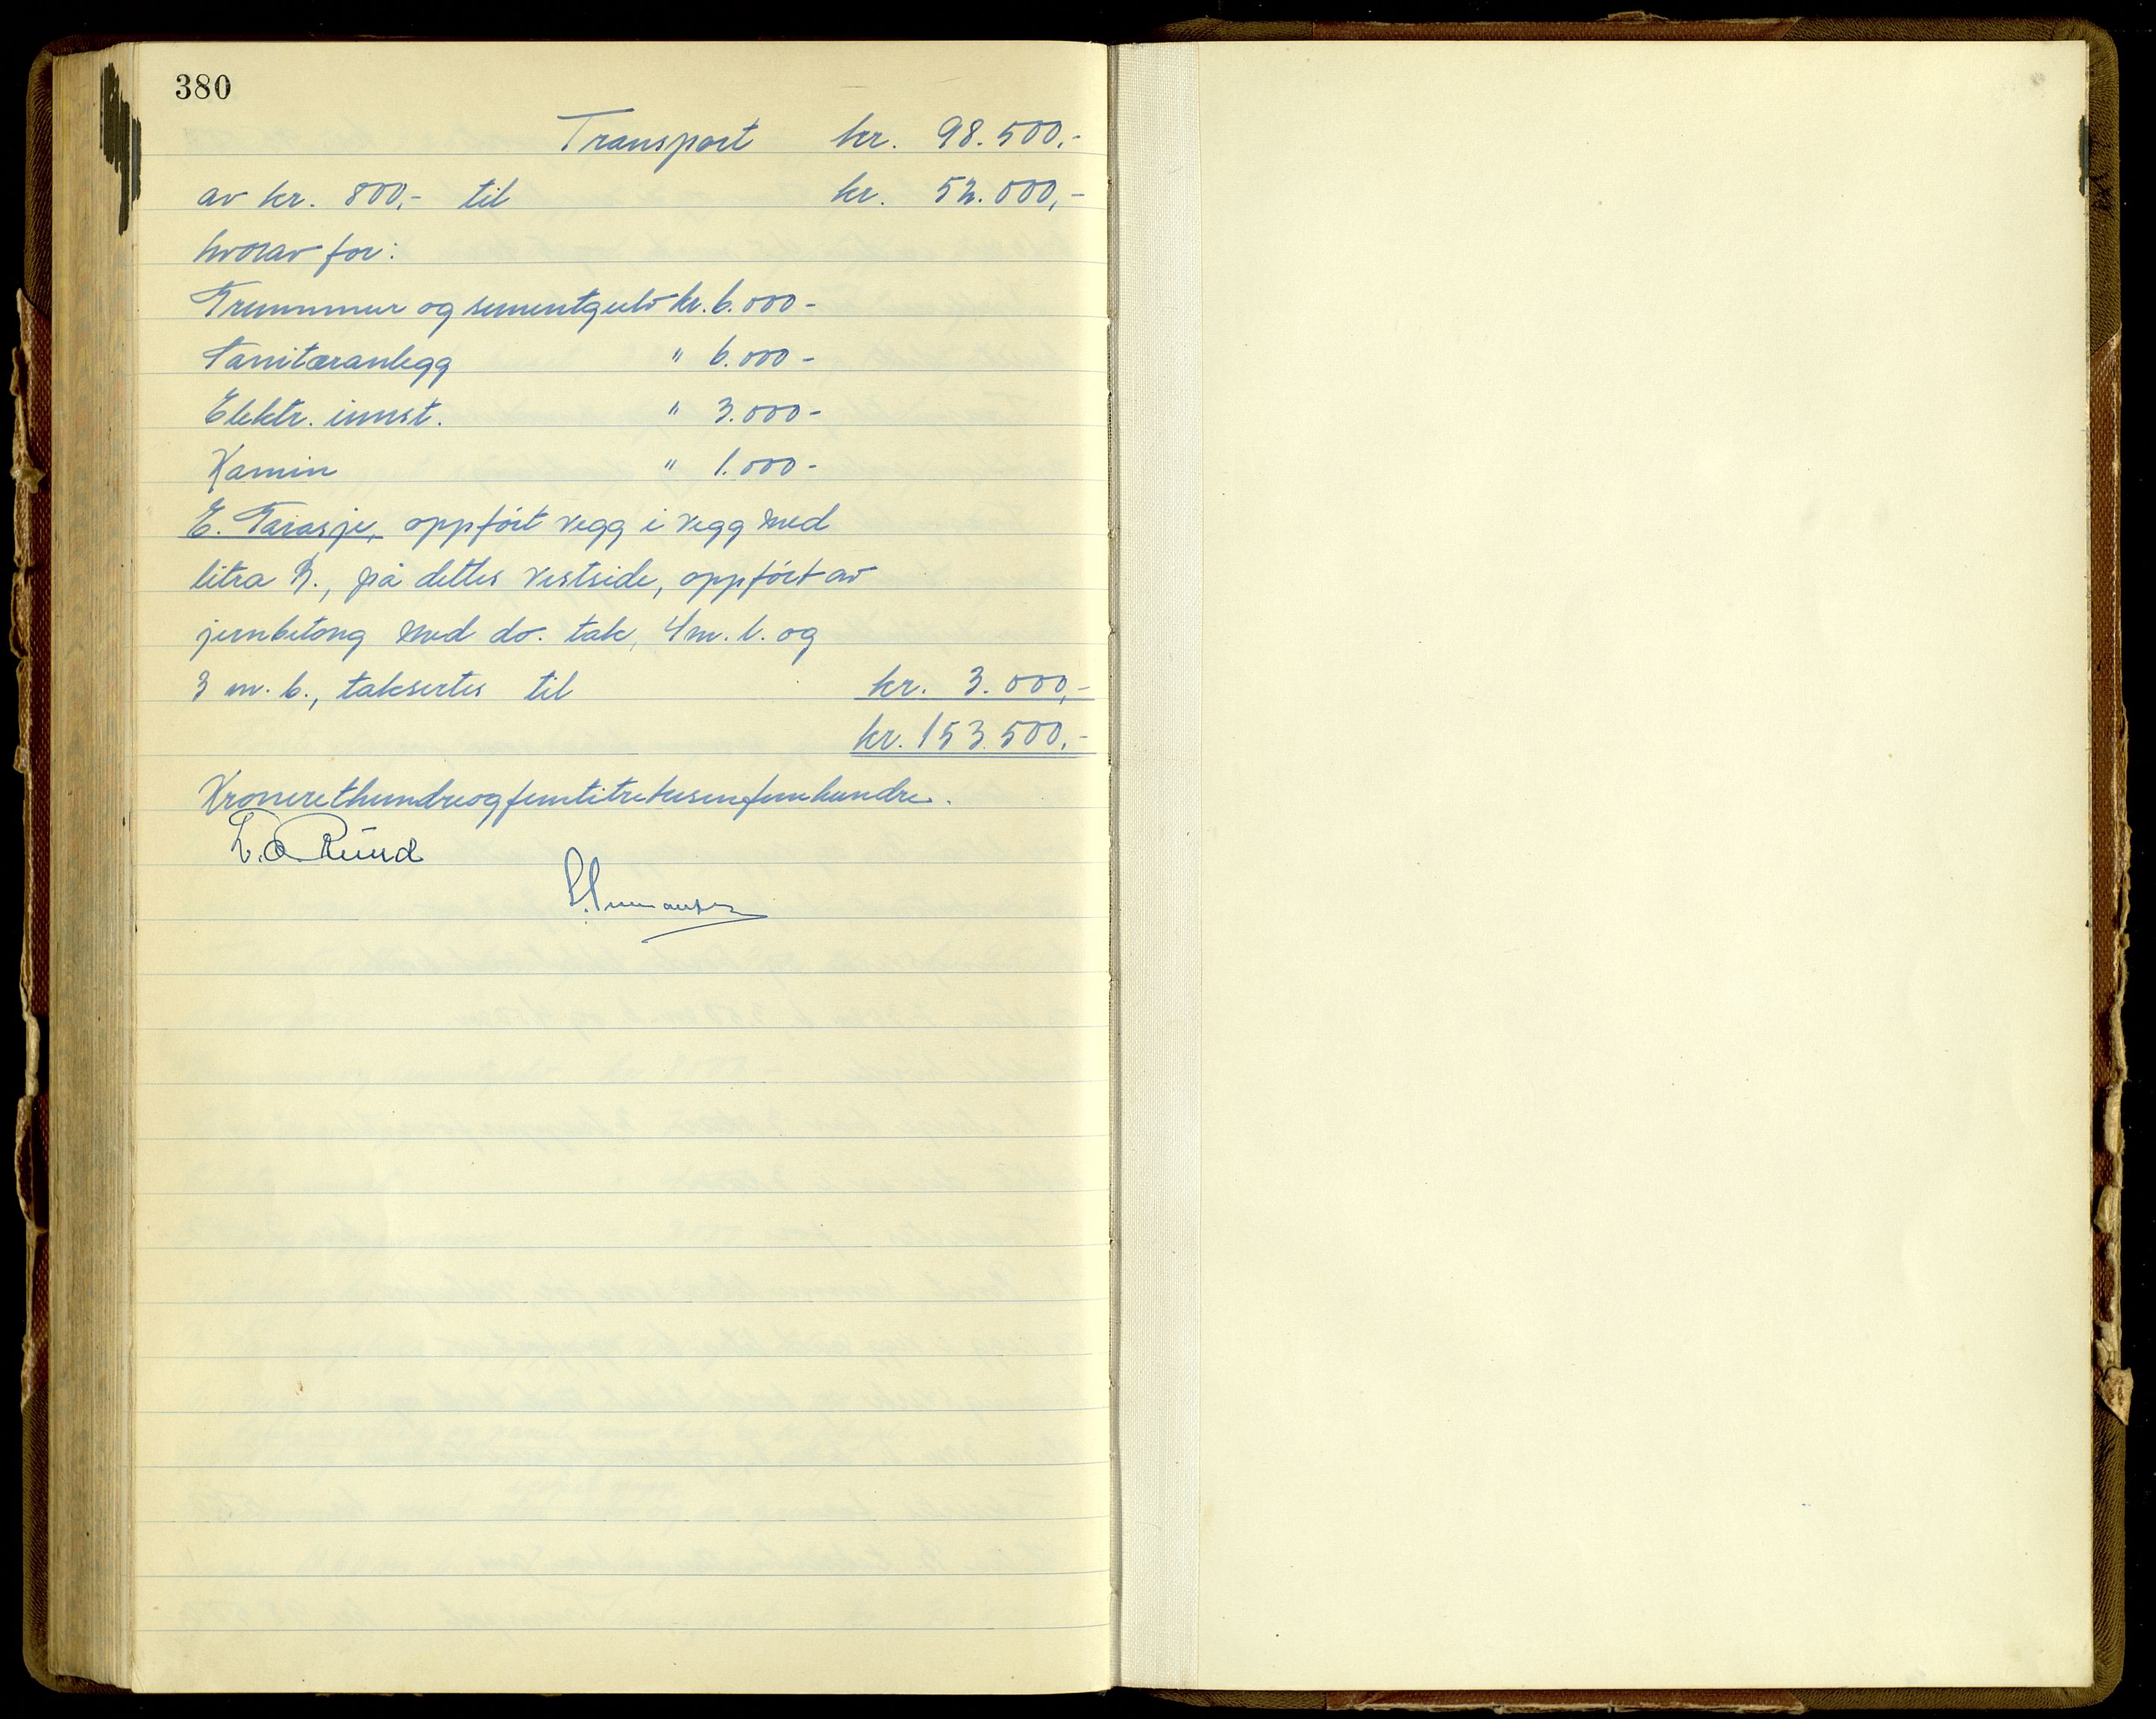 380
Transport kr. 98.500,-
av kr. 800,- til kr. 52.000,-
hvorav for:
Grunnmur og sementgulv kr. 6.000-
Sanitæranlegg " 6.000-
Elektr. innst. " 3.000-
Kamin " 1.000-
E. Garasje, oppført vegg i vegg med
litra B., på dettes vestside, oppført av
jernbetong med do. tak, 4 m. l. og
3 m. b., taksertes til kr. 3.000,-
kr. 153.500,-
Kroneretthundreogfemtitretusenfemhundre.
Ruud